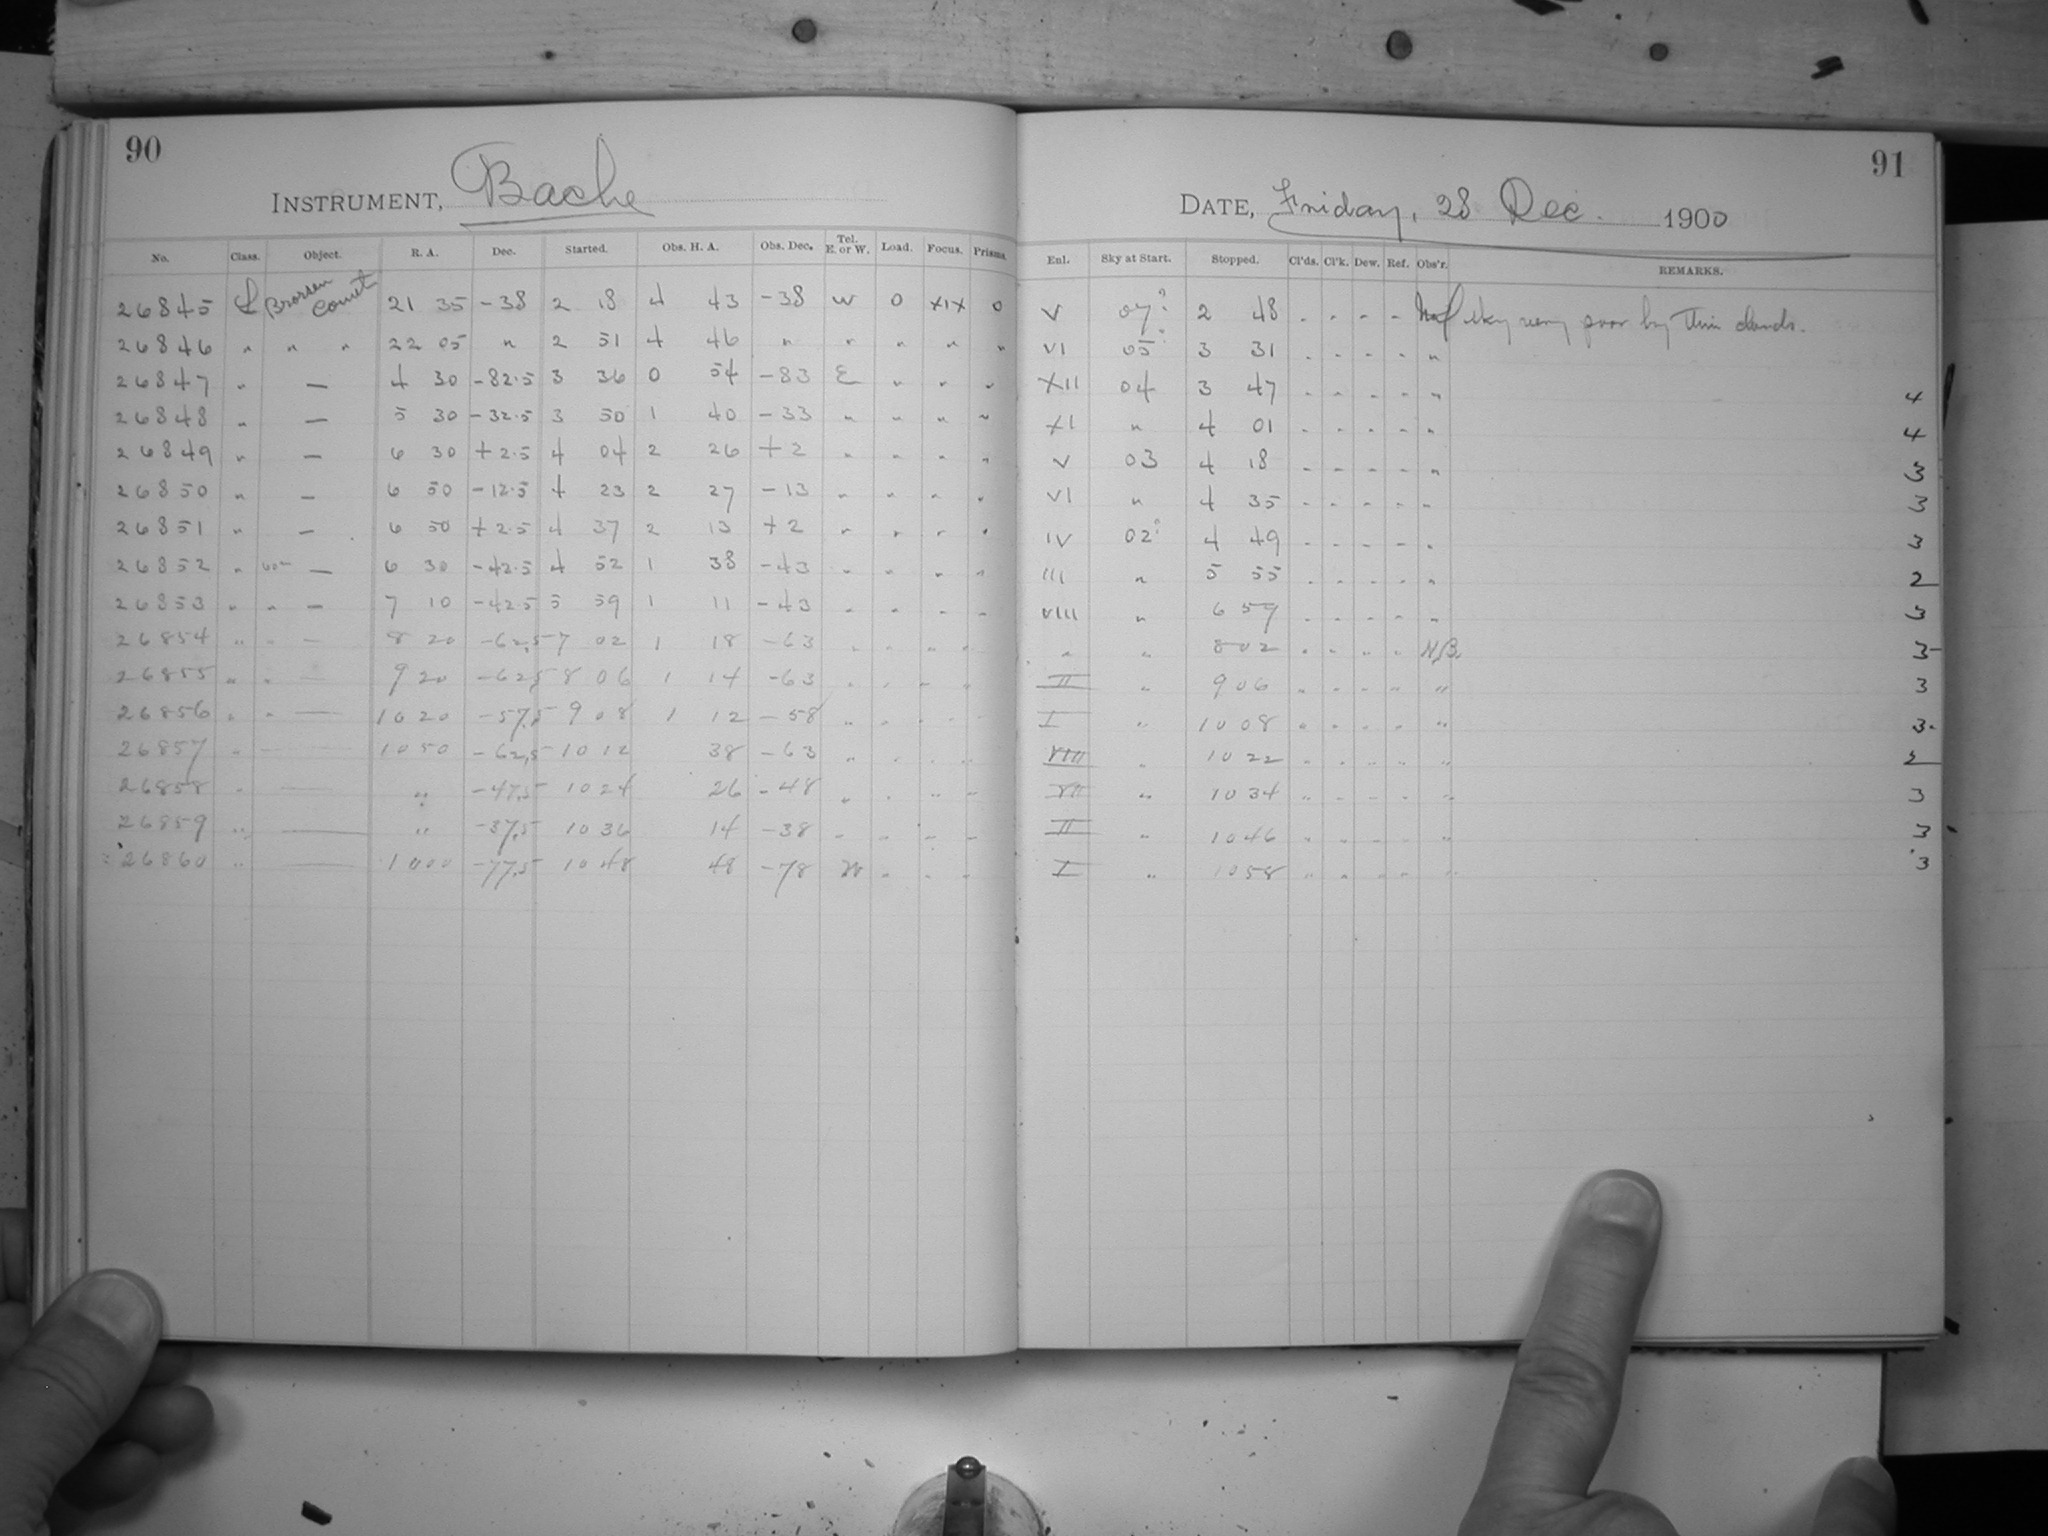 90
INSTRUMENT, Bache
No. Class. Object. R. A. Dec. Started. Obs. H. A. Obs. Dec. Tel. E. or W. Load. Focus. Prisms.
26845 L Brorsen Comet 21 35 -38 2 18 4 43 -38 W 0 XIX 0
26846 " " " 22 05 " 2 51 4 46 " " " " "
26847 " — 4 30 -82.5 3 36 0 54 -83 E " " "
26848 " — 5 30 -32.5 3 50 1 40 -33 " " " "
26849 " — 6 30 +2.5 4 04 2 26 +2 " " " "
26850 " — 6 50 -12.5 4 23 2 27 -13 " " " "
26851 " — 6 50 +2.5 4 37 2 13 +2 " " " "
26852 " 60m — 6 30 -42.5 4 52 1 38 -43 " " " "
26853 " " — 7 10 -42.5 5 59 1 11 -43 " " " "
26854 " " — 8 20 -62.5 7 02 1 18 -63 " " " "
26855 " " — 9 20 -62.5 8 06 1 14 -63 " " " "
26856 " " — 10 20 -57.5 9 08 1 12 -58 " " " "
26857 " — 10 50 -62.5 10 12 38 -63 " " " "
26858 " — " -47.5 10 24 26 -48 " " " "
26859 " — " -37.5 10 36 14 -38 " " " "
26860 " — 10 00 -77.5 10 48 48 -78 W " " "
91
DATE, Friday, 28 Dec. 1900
Enl. Sky at Start. Stopped. Cl'ds. Cl'k. Dew. Ref. Obs'r. REMARKS.
V 07? 2 48 - - - - sky very poor by thin clouds.
VI 05? 3 31 - - - - "
XII 04 3 47 - - - - " 4
XI " 4 01 - - - - " 4
V 03 4 18 - - - - " 3
VI " 4 35 - - - - " 3
IV 02? 4 49 - - - - " 3
III " 5 55 - - - - " 2
VIII " 6 57 - - - - " 3
" " 8 02 " " " " N.B. 3
II " 9 06 " " " " " 3
I " 10 08 " " " " " 3
VIII " 10 22 " " " " " 2
VII " 10 34 " " " " " 3
II " 10 46 " " " " " 3
I " 10 58 " " " " " 3